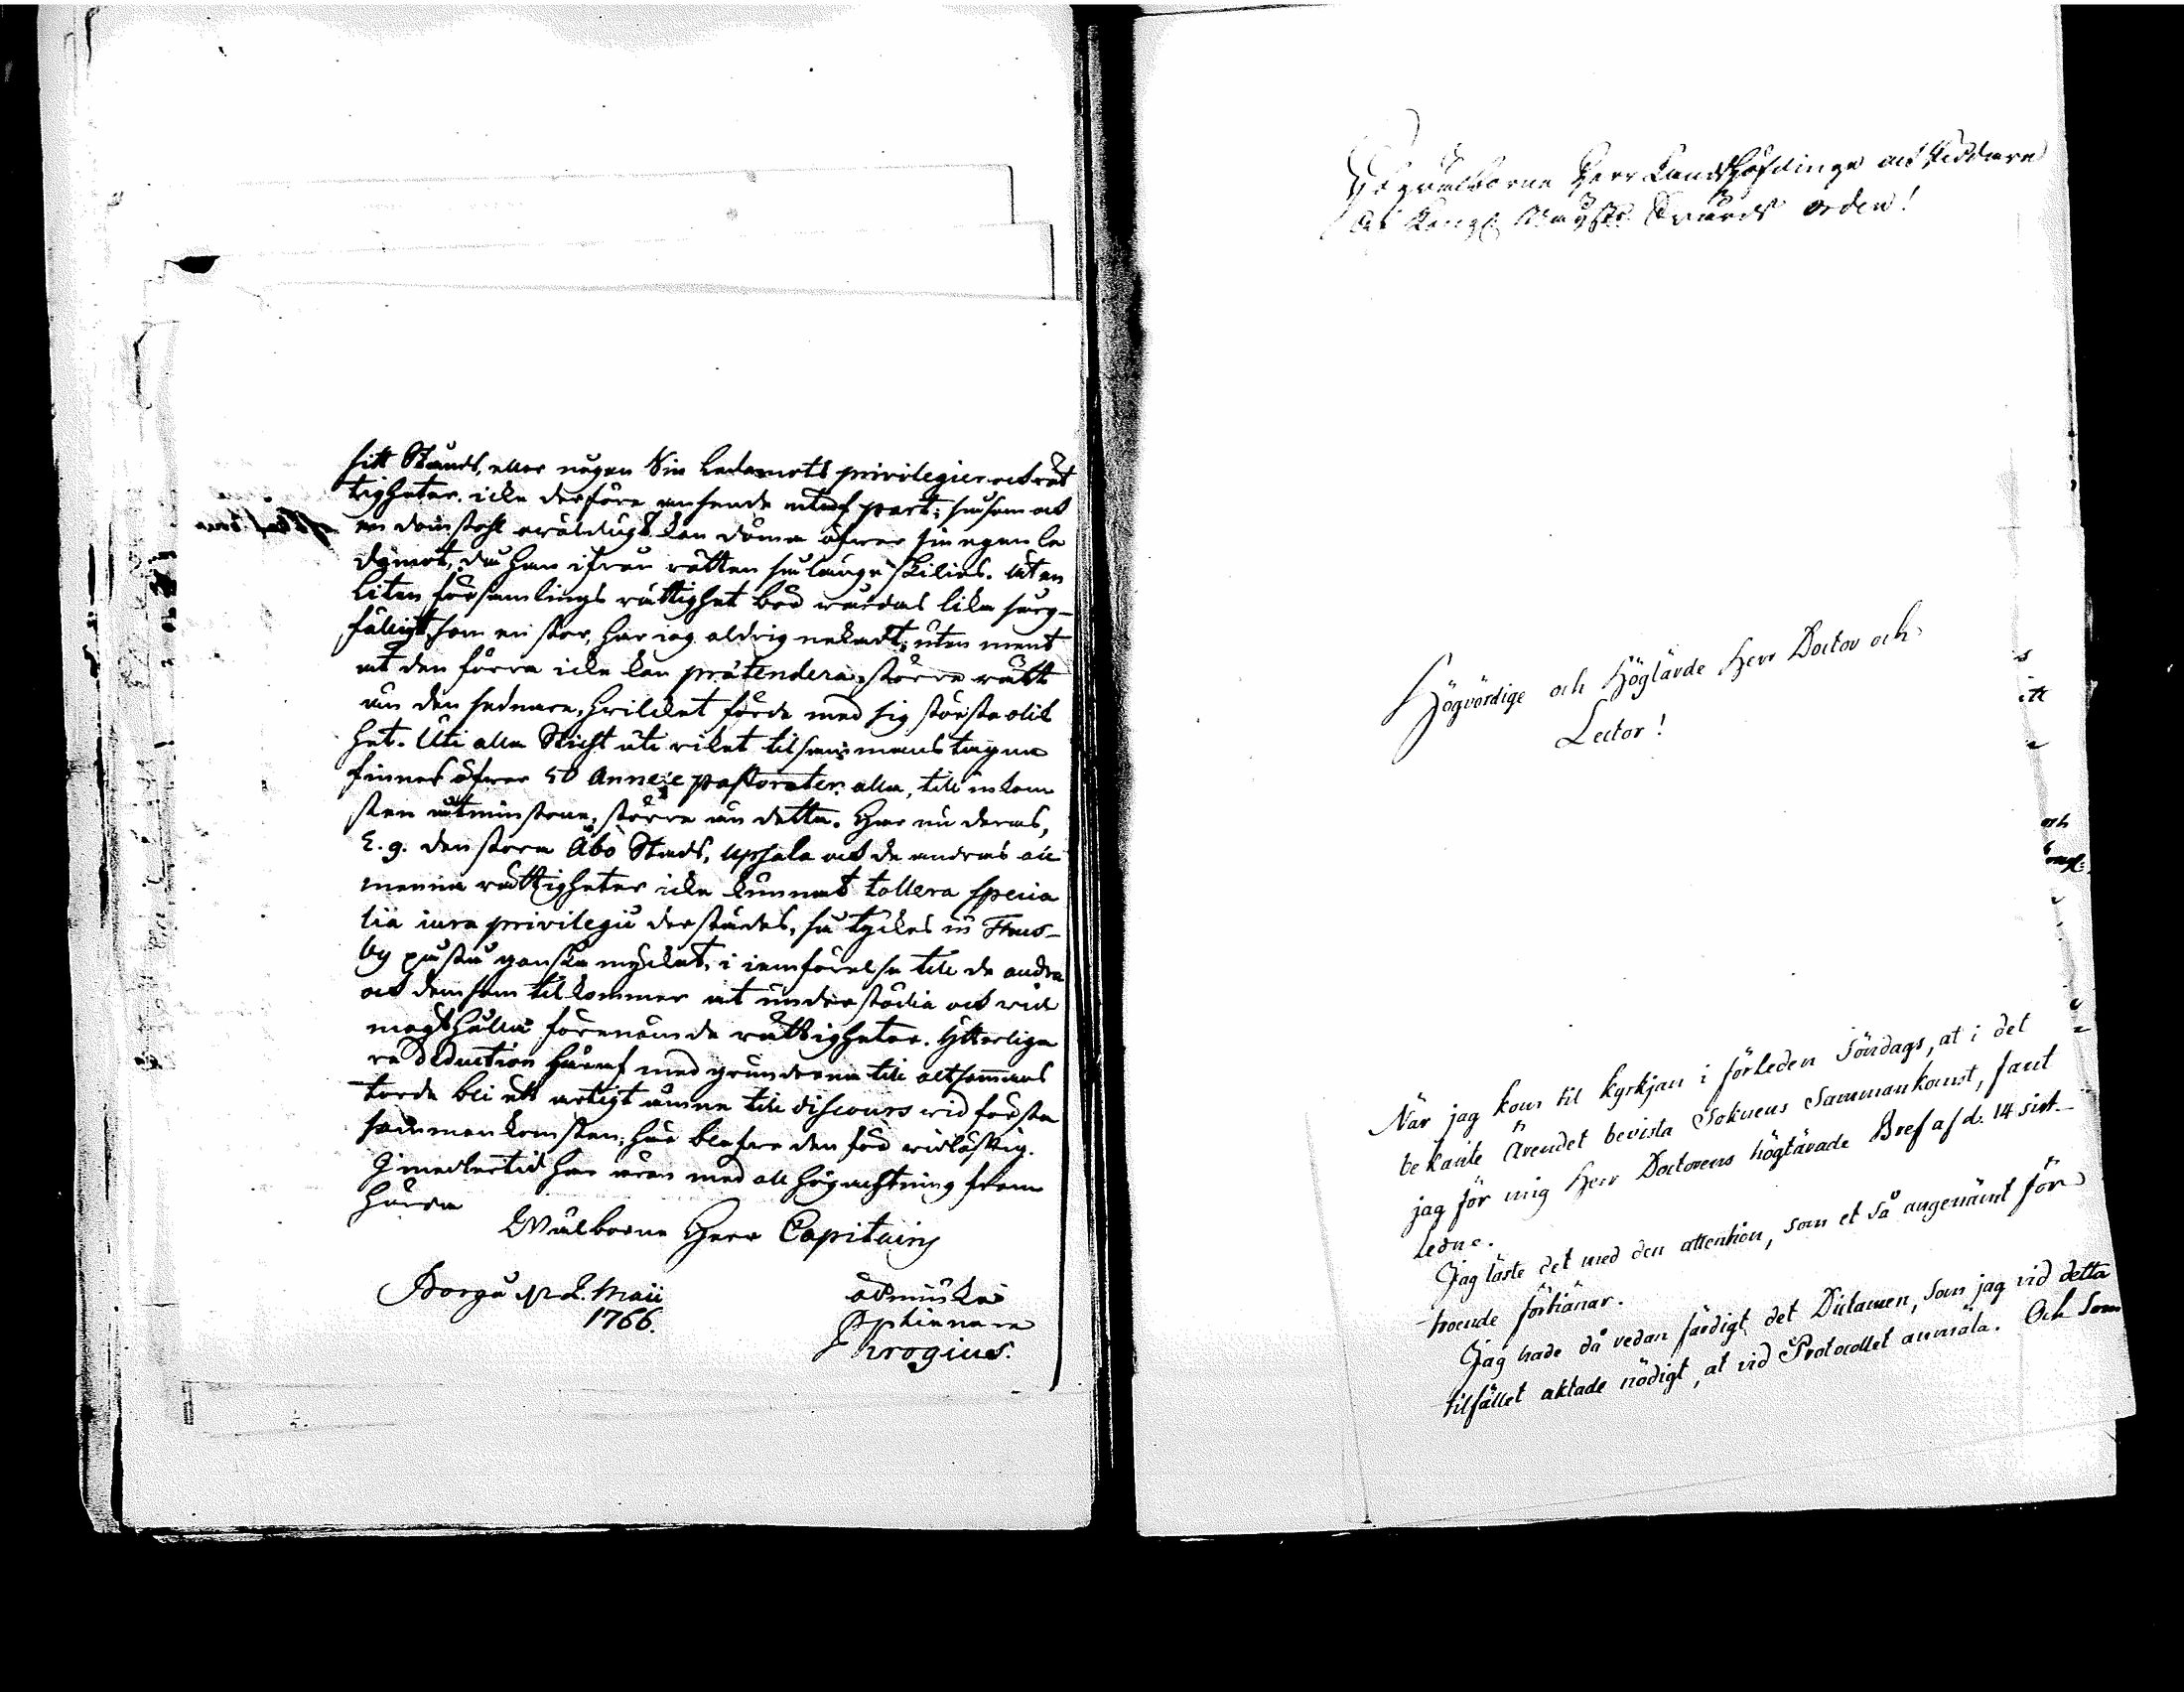 sitt Stånds, eller någon Sin Ledamots privilegier och rät
tigheter, icke derföre ansende utaf part; såsom ock
en domstohl oväldugt kan döma öfwer sin egen le
damot, då han ifrån rätten så länge skilies. At en
liten församlings rättighet bör wårdas lika sorg-
fälligt, som en stor, har iag aldrig nekadt; utan ment
at den förra icke kan prätendera större rätt
än den sednare, hvilcket förde med sig största olik
het. Uti alla Stift uti riket tilsammans tagne
finnes öfwer 50 Annexe pastorater, alla, till inkom
sten åtminstone, större än detta. Har nu deras,
E. g. den stora Åbo Stads, Upsala och de andras all
menna rättigheter icke kunnat tollera specia
lia iura privilegii derstädes, så tyckes
by påstå ganska myckat, i iemförelse till de andra
och dem som tilkommer at understödia och wid
magt hålla förenämnde rättigheter. Ytterliga
re deduction häraf med grunderna till altsammans
torde bli ett artigt ämne till discours wid första
sammankomsten; här blefwe den för widlöftig.
Imedlertid har äran med all högachtning fram
härda
Wälborne Herr Capitains
Borgå d. 2. Maii
1766.
ödmiuke
tienare
Krogius.
Högwälborne Herr Landshöfdinge och Riddare
af Kongl. Maysts. Swärds orden!
Högvördige och Höglärde Herr Doctor och
Lector!
När jag kom til kyrkjan i förleden Söndags, at i det
bekante Ärendet bevista Soknens Sammankomst, fant
jag för mig Herr Doctorens högtärade Bref af d. 14 sist-
ledne.
Jag läste det med den attention, som et så angenämt för
troende förtiänar.
Jag hade då redan färdigt det Dictamen, som jag vid detta
tilfället aktade nödigt, at vid Protocollet anmäla. Och som